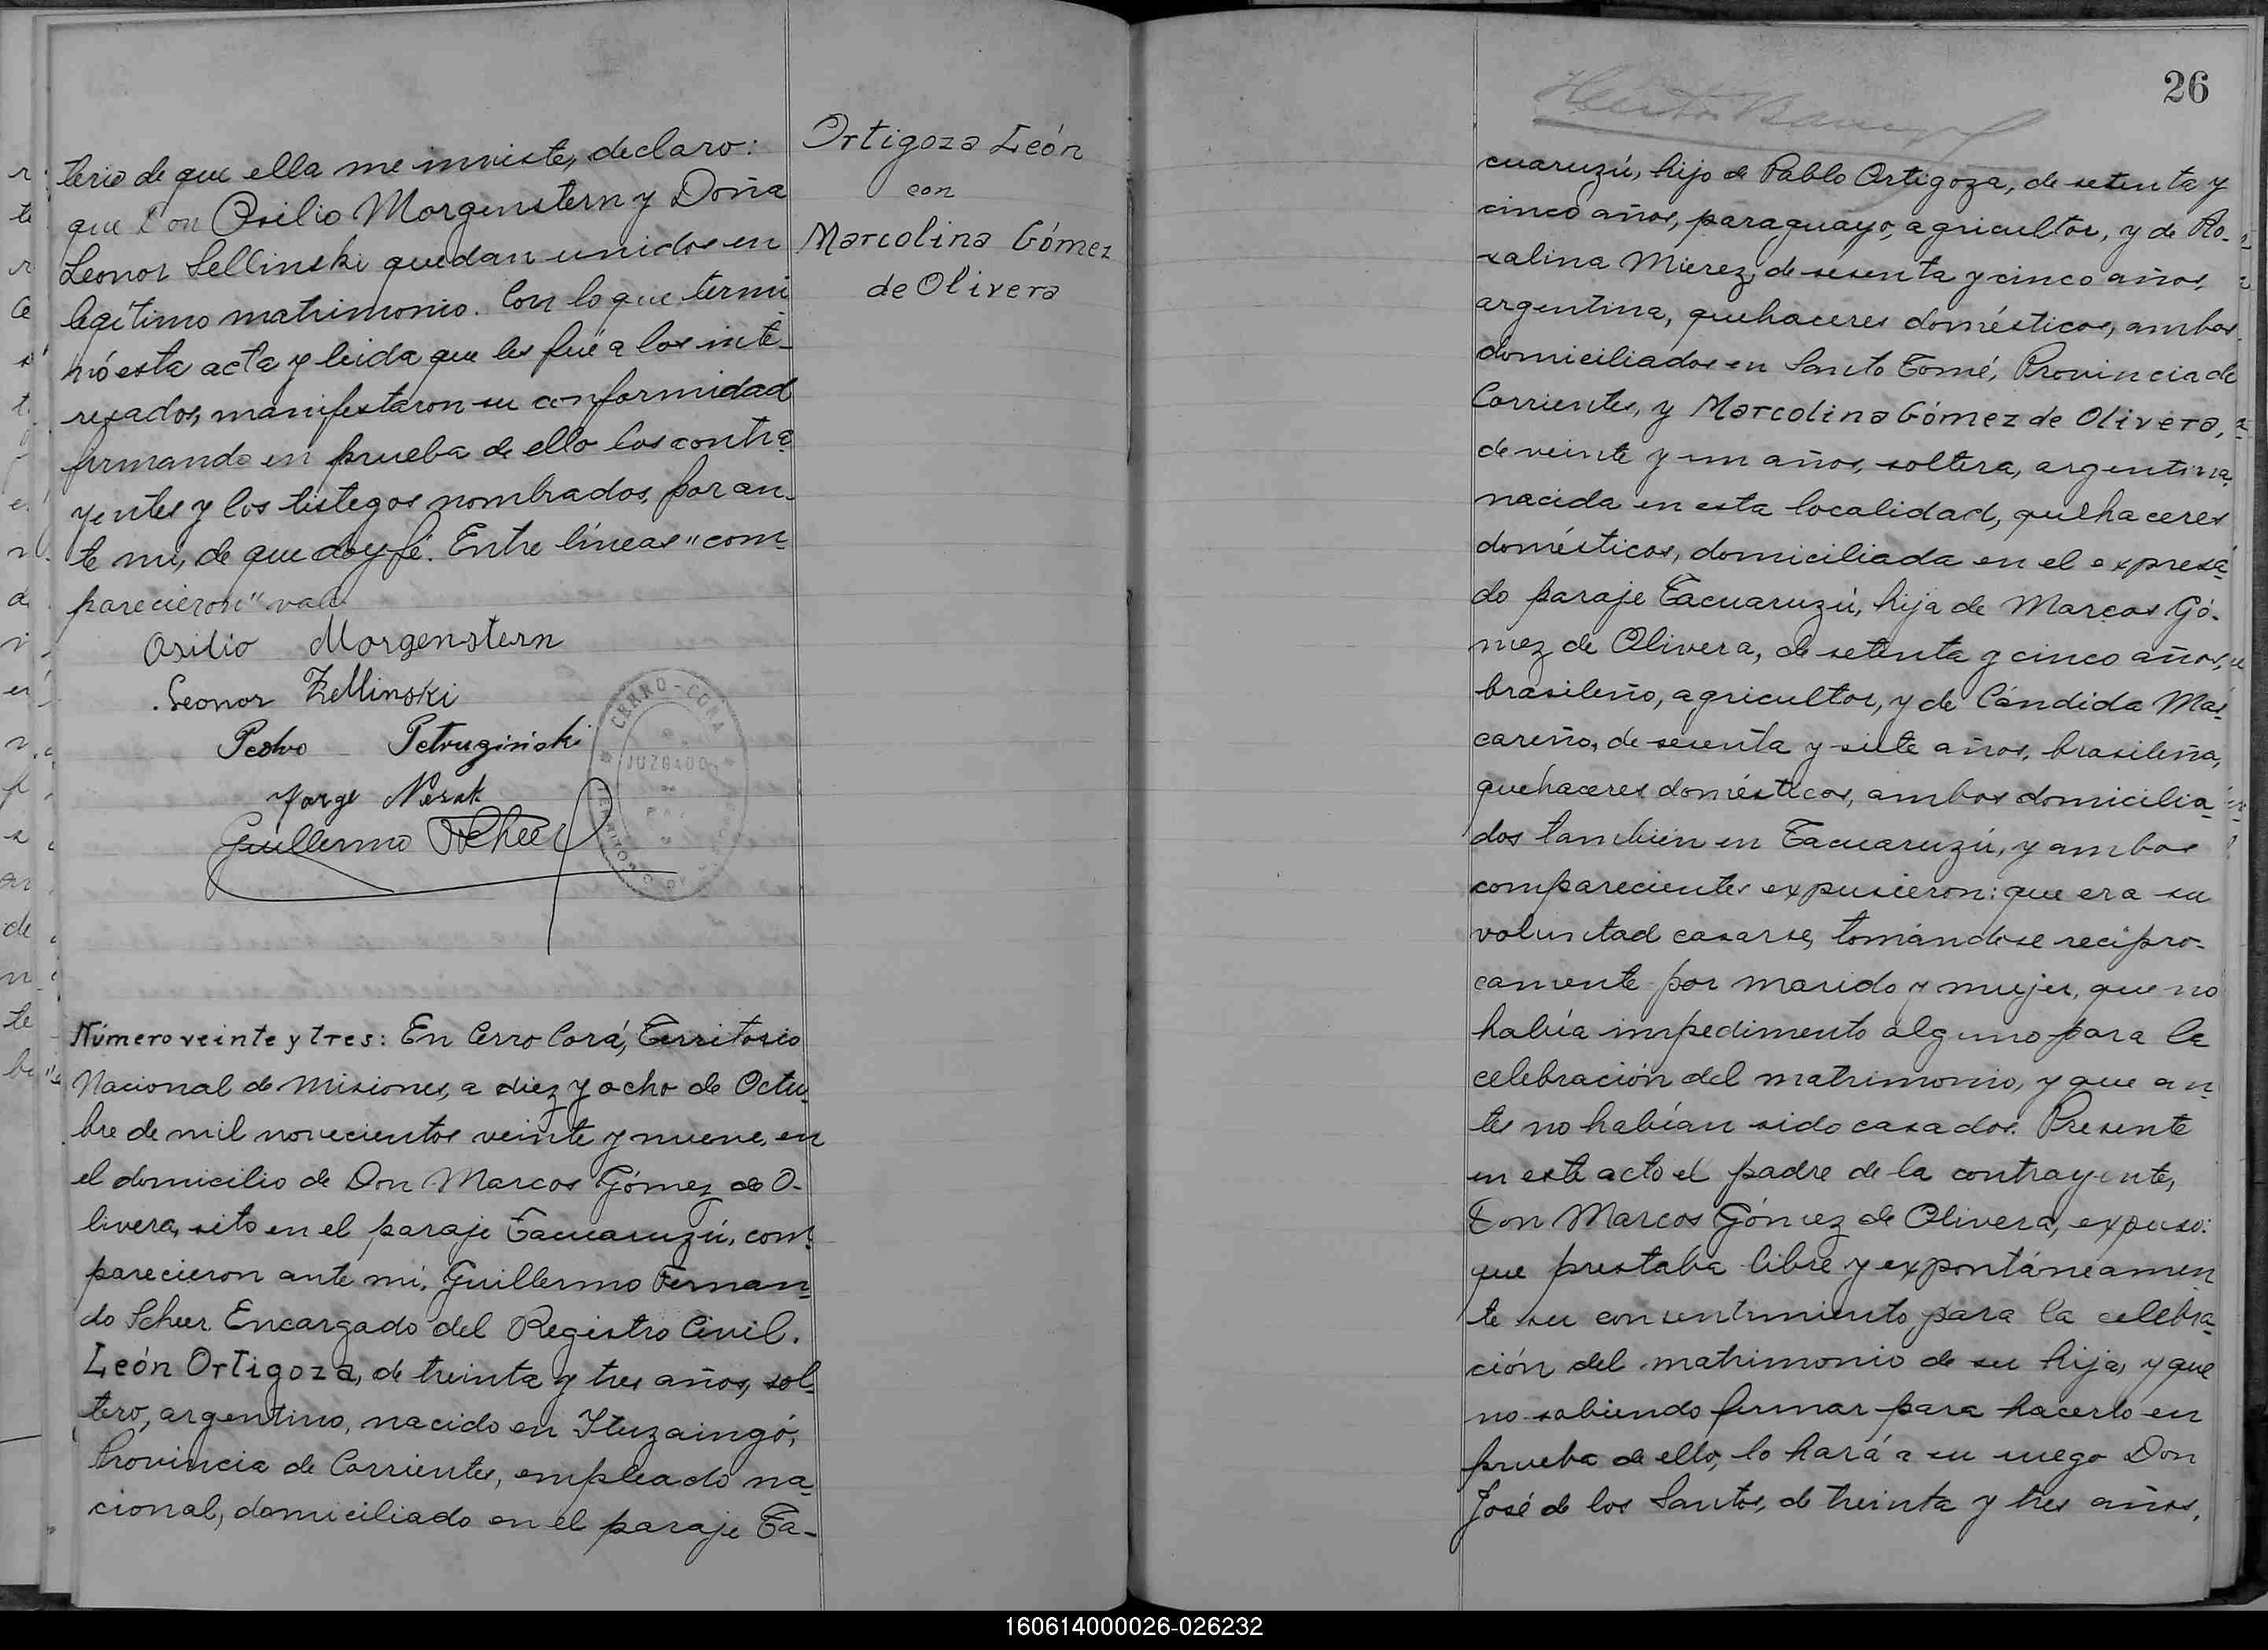 terio de que ella me inviste, declaro:
que Don Osilio Morgenstern y Doña
Leonor Sellinski quedan unidos en
legítimo matrimonio. Con lo que termi-
nó esta acta y leida que les fué a los inte-
resados, manifestaron su conformidad
firmando en prueba de ello los contra-
yentes y los testegos nombrados, por an-
te mi, de que doy fé. Entre líneas "com-
parecieron" vale
Osilio Morgenstern
Leonor Zellinski
Pedro Petruzinski
Jorge
Guillermo Scheer
CERRO-CORA
JUZGADO
Número veinte y tres: En Cerro Corá, Territorio
Nacional de Misiones, a diez y ocho de Octu-
bre de mil novecientos veinte y nueve, en
el domicilio de Don Marcos Gómez de O-
livera, sito en el paraje Tacuaruzú, com-
parecieron ante mí, Guillermo Fernan-
do Scheer Encargado del Registro Civil.
León Ortigoza, de treinta y tres años, sol-
tero, argentino, nacido en Ituzaingó,
Provincia de Corrientes, empleado na-
cional, domiciliado en el paraje Ta-
Ortigoza León
con
Marcolina Gómez
de Olivera
26
cuaruzú, hijo de Pablo Ortigoza, de setenta y
cinco años, paraguayo, agricultor, y de Ro-
salina Mierez, de sesenta y cinco años,
argentina, quehaceres domésticos, ambos
domiciliados en Santo Tomé, Provincia de
Corrientes, y Marcolina Gómez de Olivera,
de veinte y un años, soltera, argentina,
nacida en esta localidad, quehaceres
domésticos, domiciliada en el expresa-
do paraje Tacuaruzú, hija de Marcos Gó-
mez de Olivera, de setenta y cinco años,
brasileño, agricultor, y de Cándida Mas-
careño, de sesenta y siete años, brasileña,
quehaceres domésticos, ambos domicilia-
dos tambien en Tacuaruzú, y ambos
comparecientes expusieron: que era su
voluntad casarse, tomándose recipro-
camente por marido y mujer, que no
había impedimento alguno para la
celebración del matrimonio, y que an-
tes no habían sido casados. Presente
en este acto el padre de la contrayente,
Don Marcos Gómez de Olivera, expuso:
que prestaba libre y expontáneamen
te su consentimiento para la celebra-
ción del matrimonio de su hija, y que
no sabiendo firmar para hacerlo en
prueba de ello, lo hará a su ruego Don
José de los Santos, de treinta y tres años,
160614000026-026232